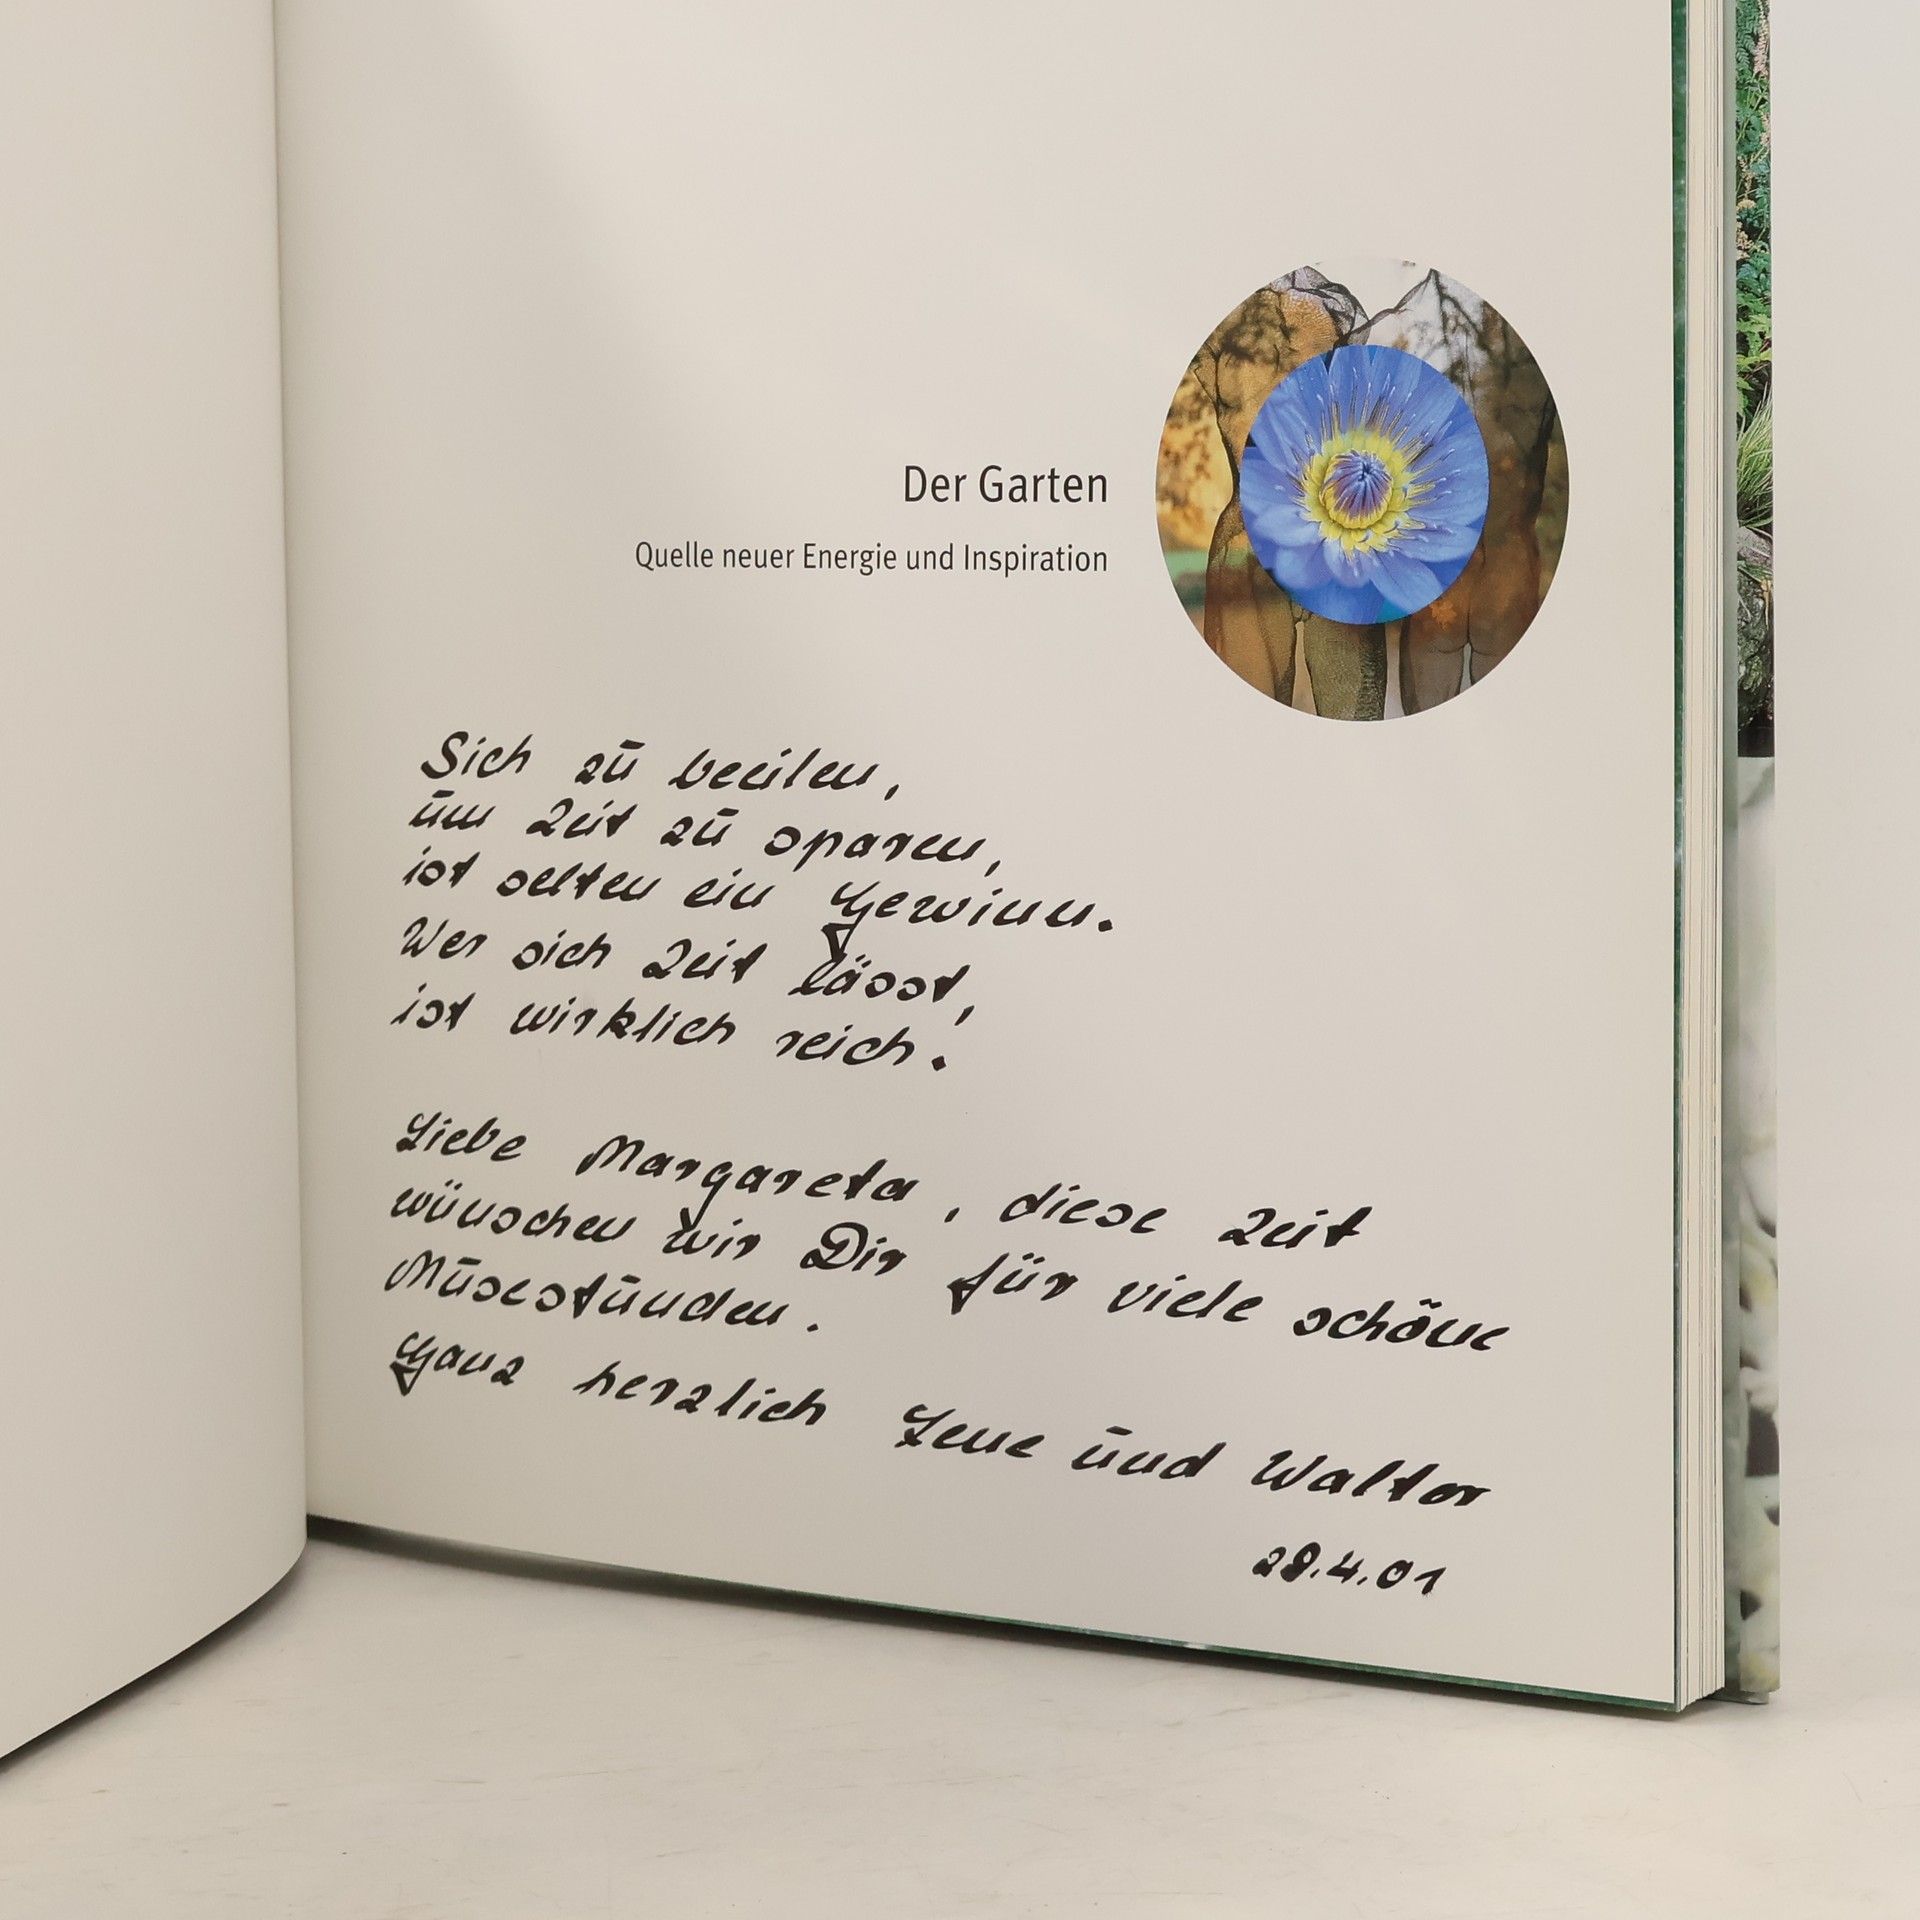 Der Garten
Quelle neuer Energie und Inspiration
Sich zū beeilen,
ūm Zeit zū sparen,
ist selten ein Gewinn.
Wer sich Zeit lässt,
ist wirklich reich.
Liebe Margareta, diese Zeit
wünschen wir Dir für viele schöne
Mūsestūnden.
Ganz herzlich Lene ūnd Walter
28.4.01